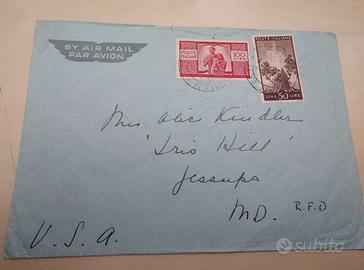 BY AIR MAIL
PAR AVION
POSTE
ITALIANE
100
LIRE
POSTE ITALIANE
LIRE 50 LIRE
Mrs Alice Kindler
"Iris Hill"
Jessups
MD. R.F.D
U.S.A.
subito